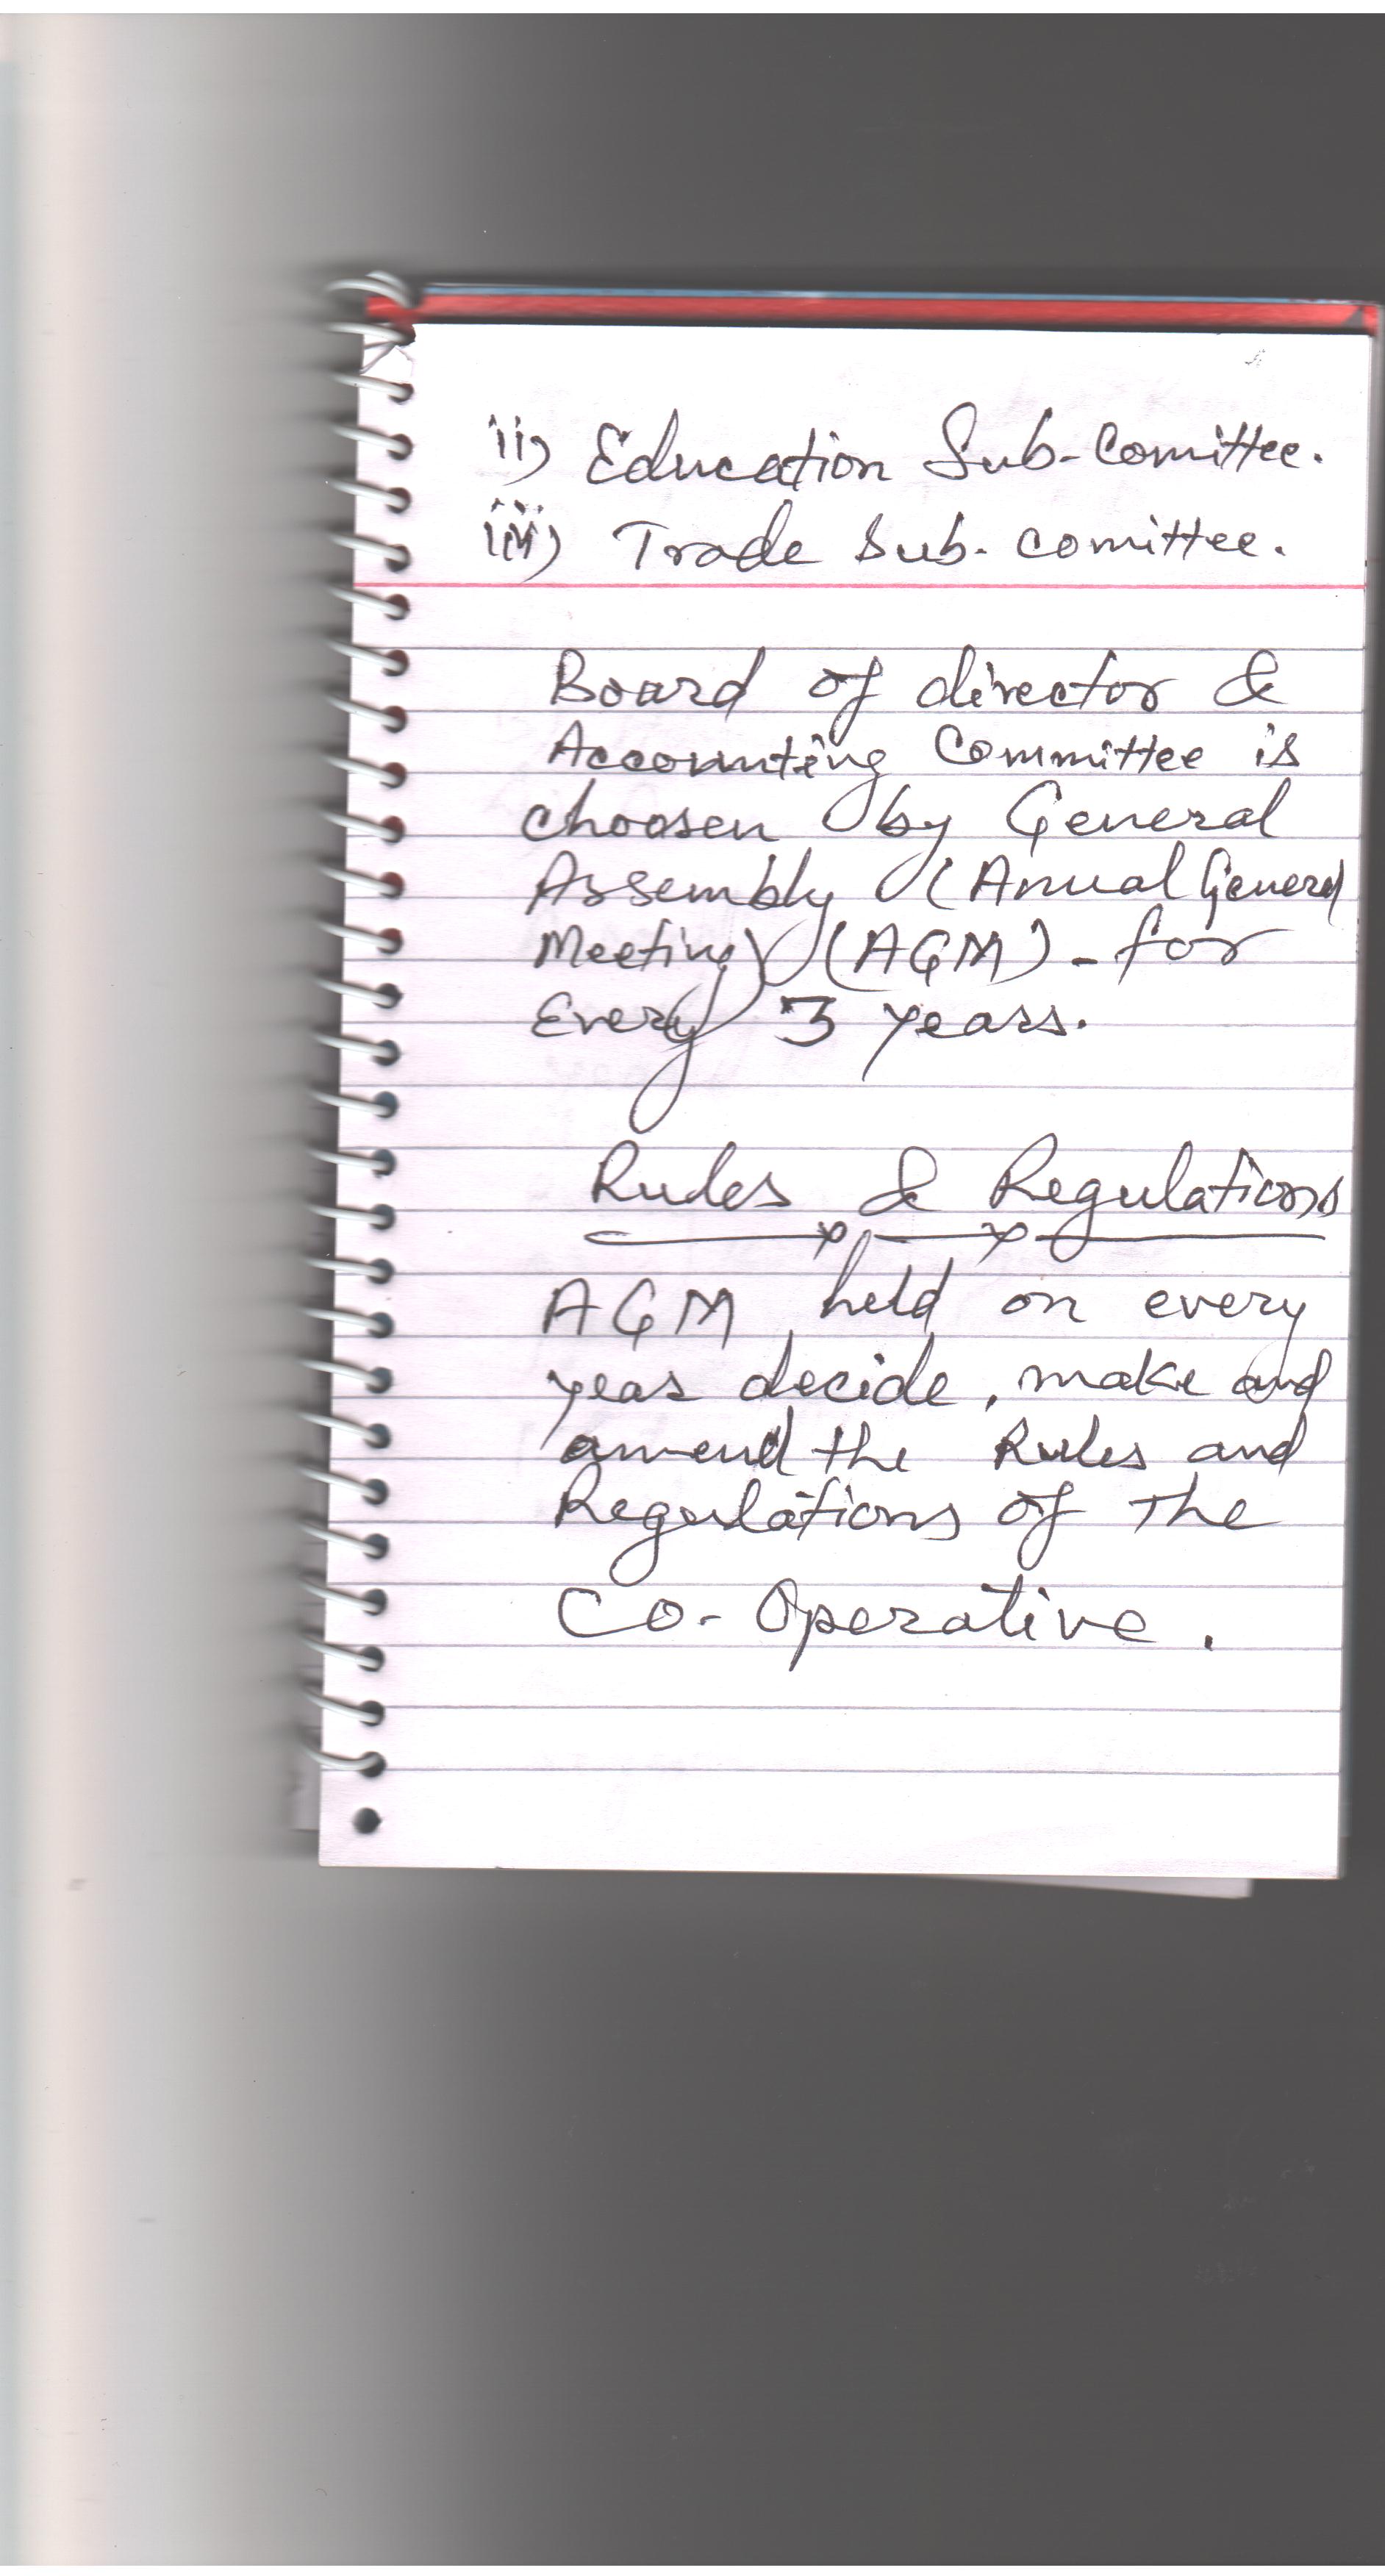 ii) Education Sub-Comittee.
iii) Trade Sub-comittee.
Board of director &
Accounting Committee is
choosen by General
Assembly (Anual General
Meeting) (AGM) - for
Every 3 years.
Rules & Regulations
AGM held on every
year decide, make and
amend the Rules and
Regulations of the
Co-Operative.